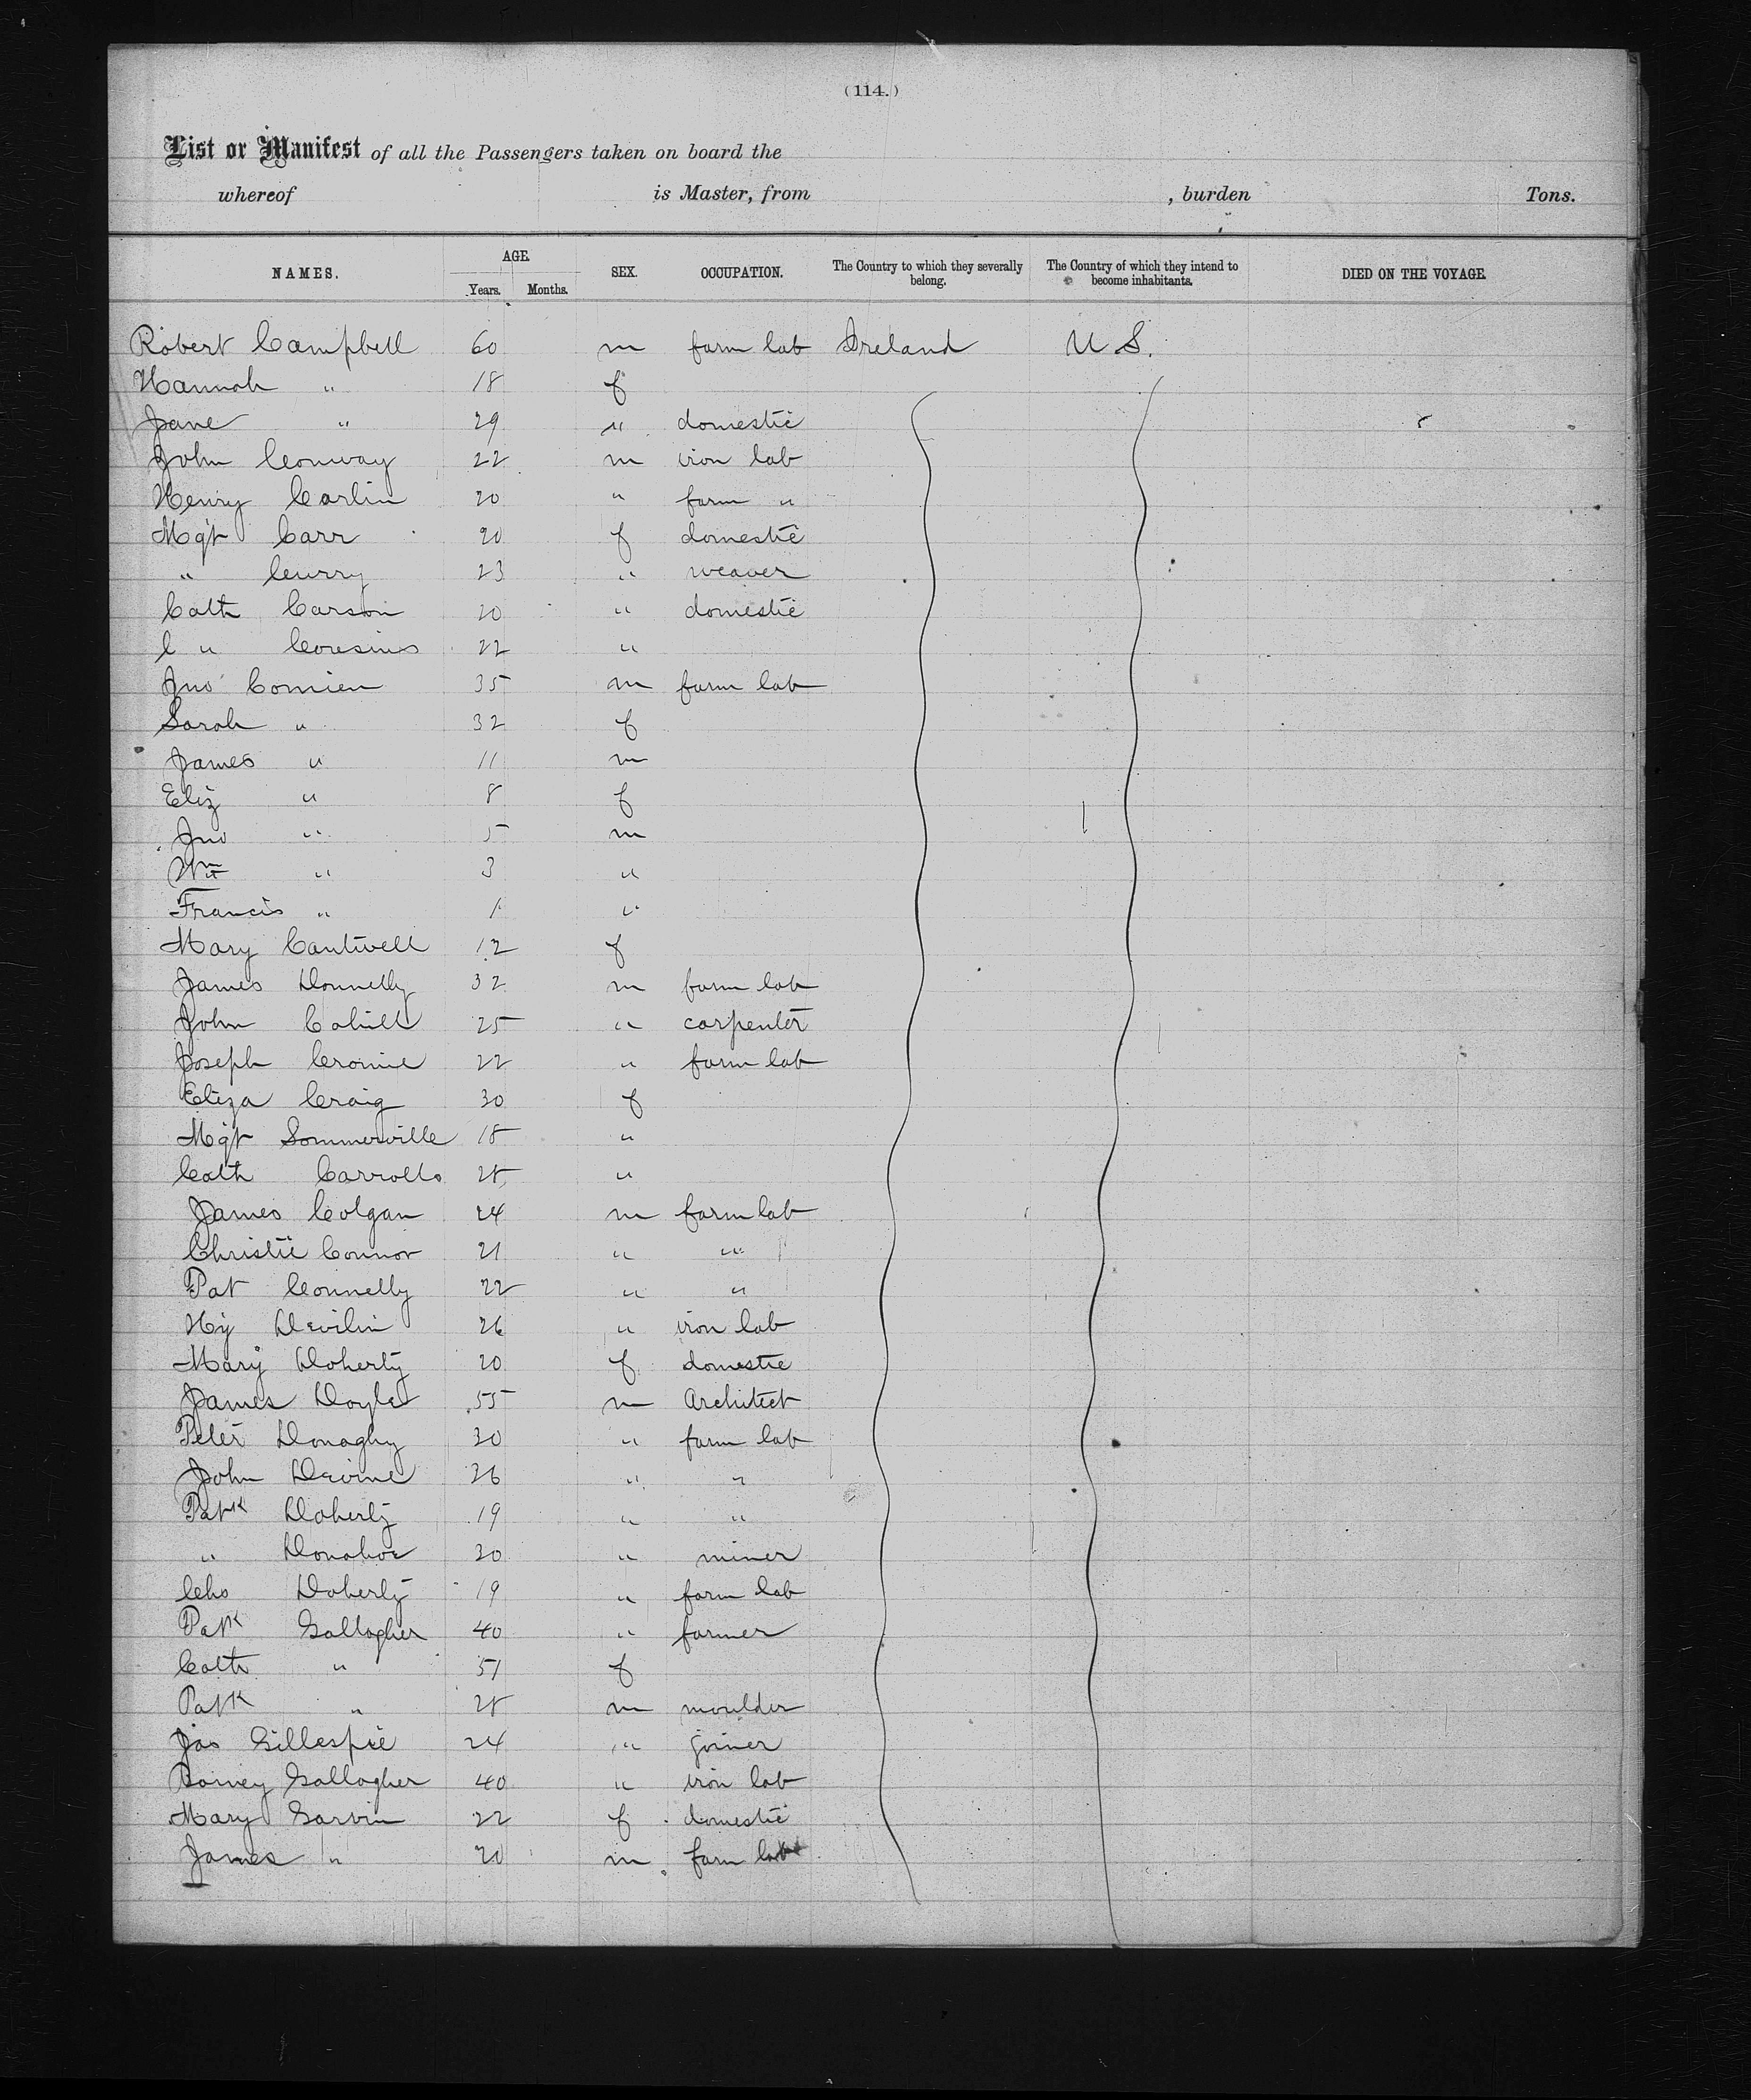 (114.)
List or Manifest of all the Passengers taken on board the
whereof is Master, from , burden Tons.
NAMES. AGE. Years. Months. SEX. OCCUPATION. The Country to which they severally belong. The Country of which they intend to become inhabitants. DIED ON THE VOYAGE
Robert Campbell 60 m farm lab Ireland U S.
Hannah " 18 f
Jane " 29 " domestic
John Conway 22 m iron lab
Henry Carlin 20 " farm "
Mgt Carr 20 f domestic
" Curry 23 " weaver
Cath Carson 20 " domestic
C " 22 "
Jno 35 m farm lab
Sarah " 32 f
James " 11 m
Eliz " 8 f
Jno " 5 m
Wm " 3 "
Francis " 1 "
Mary Cantwell 12 f
James Donnelly 32 m farm lab
John Cahill 25 " carpenter
Joseph 22 " farm lab
Eliza Craig 30 f
Mgt Sommerville 18 "
Cath Carrolls "
James Colgan 24 m farm lab
Christie Connor 21 " "
Pat Connelly 22 " "
Hy Devilin 26 " iron lab
Mary Doherty 20 f domestic
James Doyle 55 m Architect
Peter Donaghy 30 " farm lab
John Devine 26 " "
Patk Doherty 19 " "
" Donahoe 30 " miner
Chs Doherty 19 " farm lab
Patk Gallagher 40 " farmer
Cath " 51 f
Patk " 28 m moulder
Jas Gillespie 24 " joiner
Gallagher 40 " iron lab
Mary Garvin 22 f domestic
James " 20 m farm lab